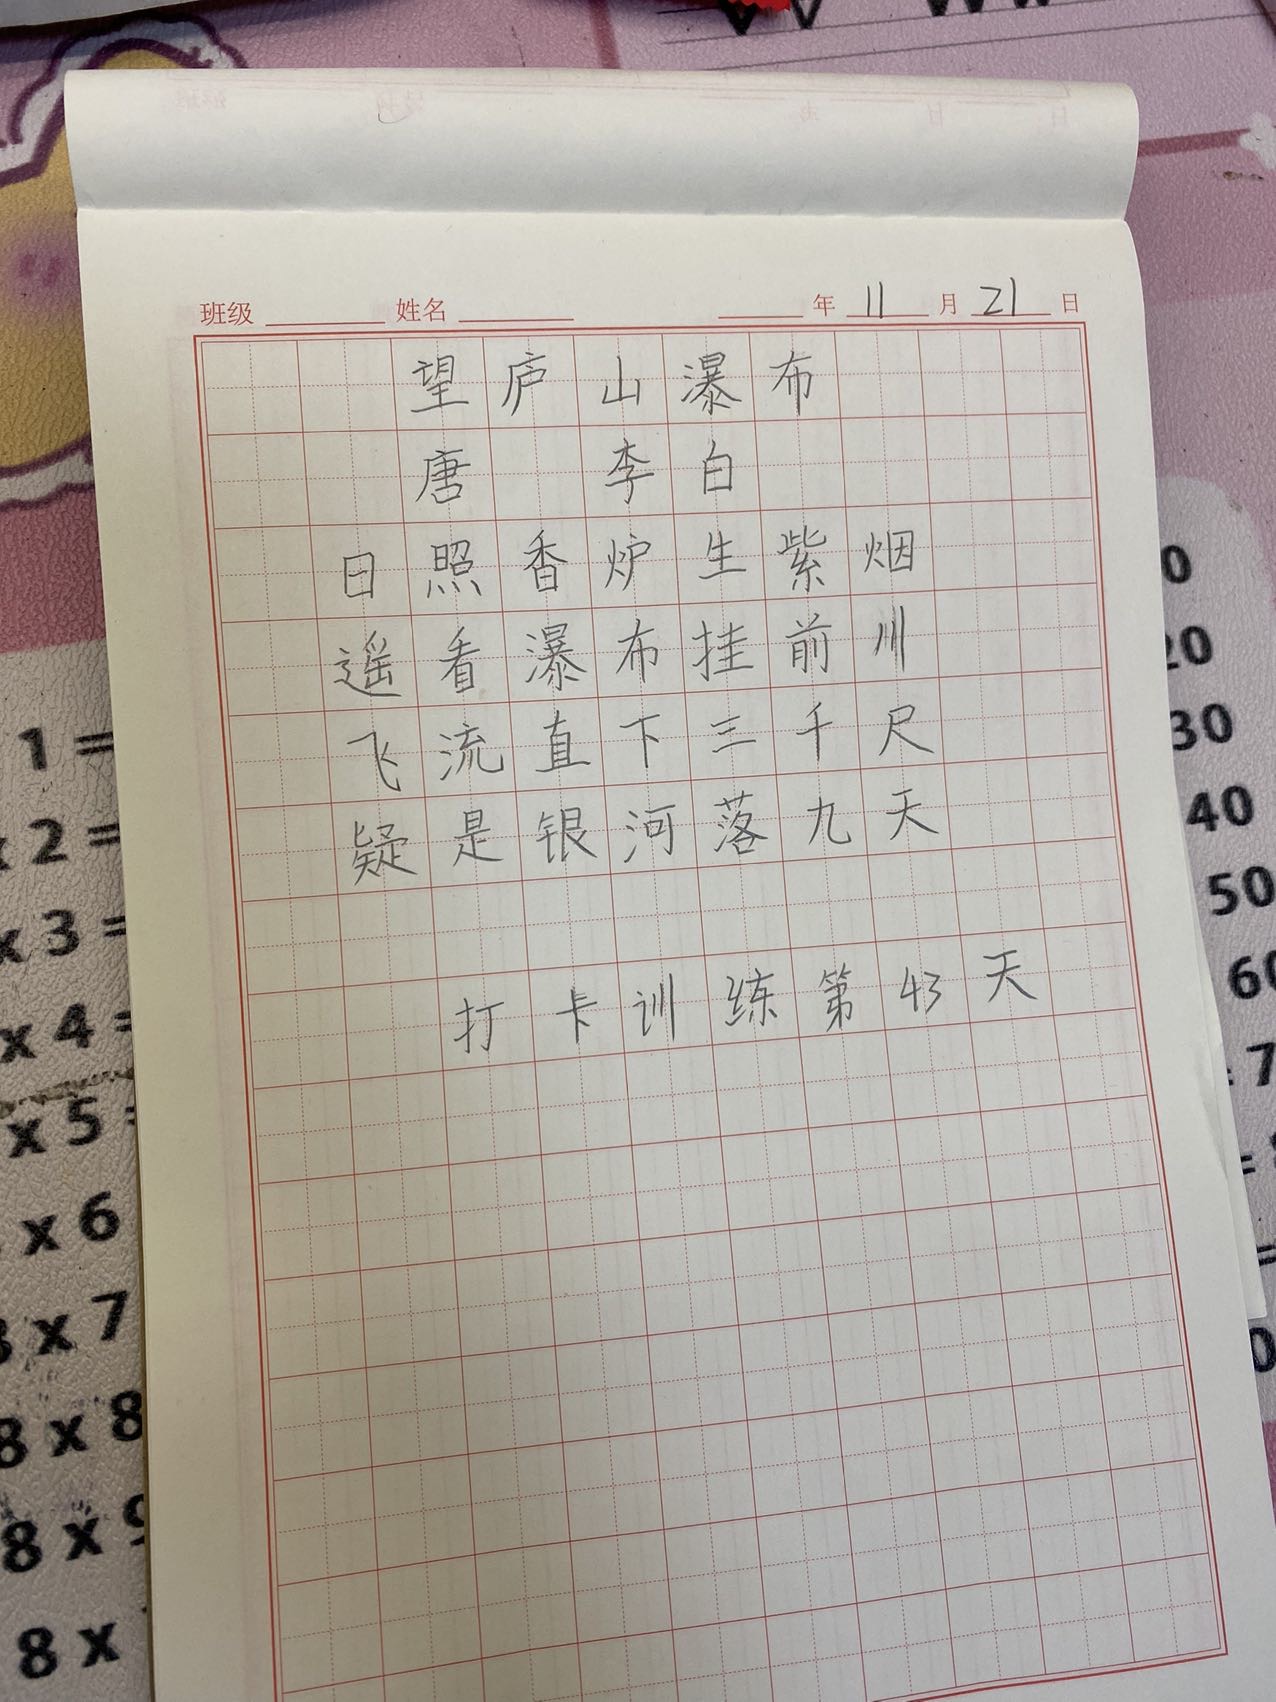 班级 姓名 年 11 月 21 日
望庐山瀑布
唐 李白
日照香炉生紫烟
遥看瀑布挂前川
飞流直下三千尺
疑是银河落九天
打卡训练第43天
1 =
x 2 =
x 3 =
x 4 =
x 5 =
x 6
x 7
8 x 8
8 x 9
8 x
0
20
30
40
50
60